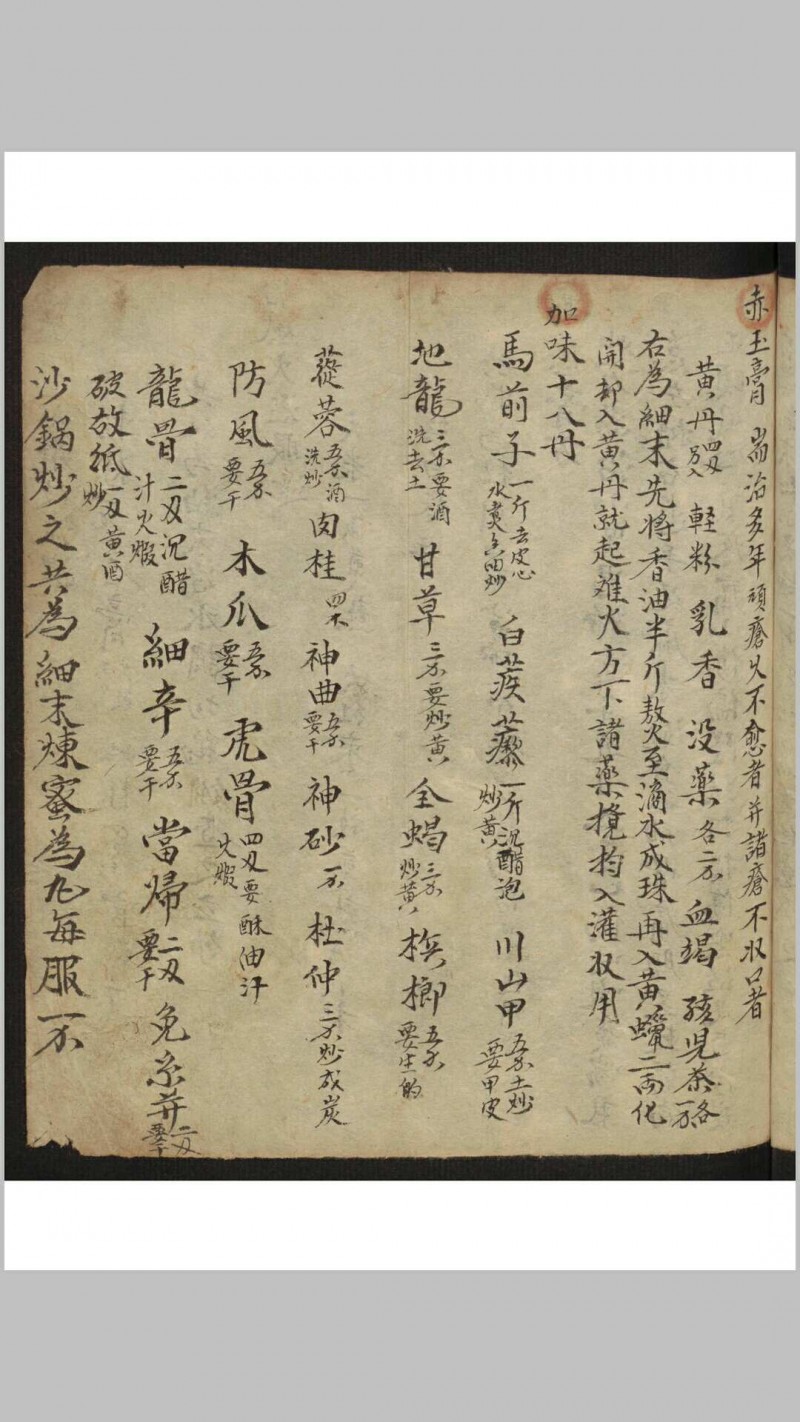 赤玉膏 耑治多年頑瘡久不愈者并諸瘡不收口者
黃丹四刄另入 軽粉 乳香 没藥各二 血竭 孩児茶各一
右為細末先將香油半斤熬至滴水成珠再入黃蠟二兩化
開却入黃丹就起难火方下諸藥攪均入灌收用
加味十八丹
馬前子一斤去皮心水煮 白蒺藜一斤沉醋泡炒黃 川山甲五土炒要甲皮
地龍三要酒洗去土 甘草三要炒黃 全蝎三炒黃 梹榔五要生的
蓯蓉五酒洗炒 肉桂四 神曲五要干 神砂 杜仲三炒成炭
防風五要干 木瓜五要干 虎骨四刄要酥油汁火煅
龍骨二刄沉醋汁火煅 細辛五要干 當歸二刄要干 兔糸并二刄要干
破故紙一刄黃酒炒
沙鍋炒之共為細末煉蜜為丸每服一